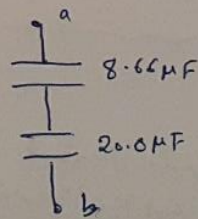 a
8.66μF
20.0μF
b